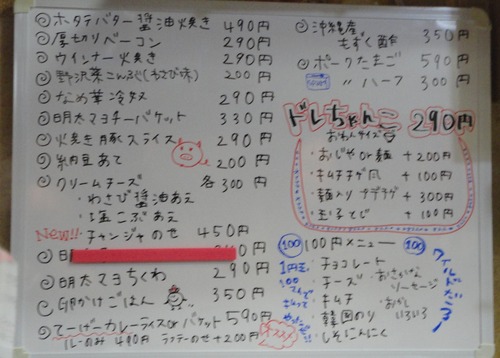 ◎ホタテバター醤油焼き 490円
◎厚切りベーコン 290円
◎ウインナー焼き 290円
◎野沢菜こんぶ(わさび味) 200円
◎なめ茸冷奴 290円
◎明太マヨチーバケット 330円
◎火焼き豚スライス 290円
◎納豆あて 200円
◎クリームチーズ 各300円
・わさび醤油あえ
・塩こぶあえ
New!! チャンジャのせ 450円
◎明太マヨちくわ 290円
◎卵かけごはん 350円
◎てーげーカレーライスorバケット 590円
ルーのみ 490円 ラフテーのせ+200円
◎沖縄産もずく酢 350円
◎ポークたまご 590円
〃 ハーフ 300円
ドレちゃんこ 290円
おわんサイズ
・おじやor麺 +200円
・キムチチゲ風 +100円
・麺入り +300円
・玉子とじ +100円
100 100円メニュー 100
・チョコレート
・チーズ ・おさかなソーセージ
・キムチ ・おかし いろいろ
・韓国のり
・しそにんにく
ワイルドだろ〜